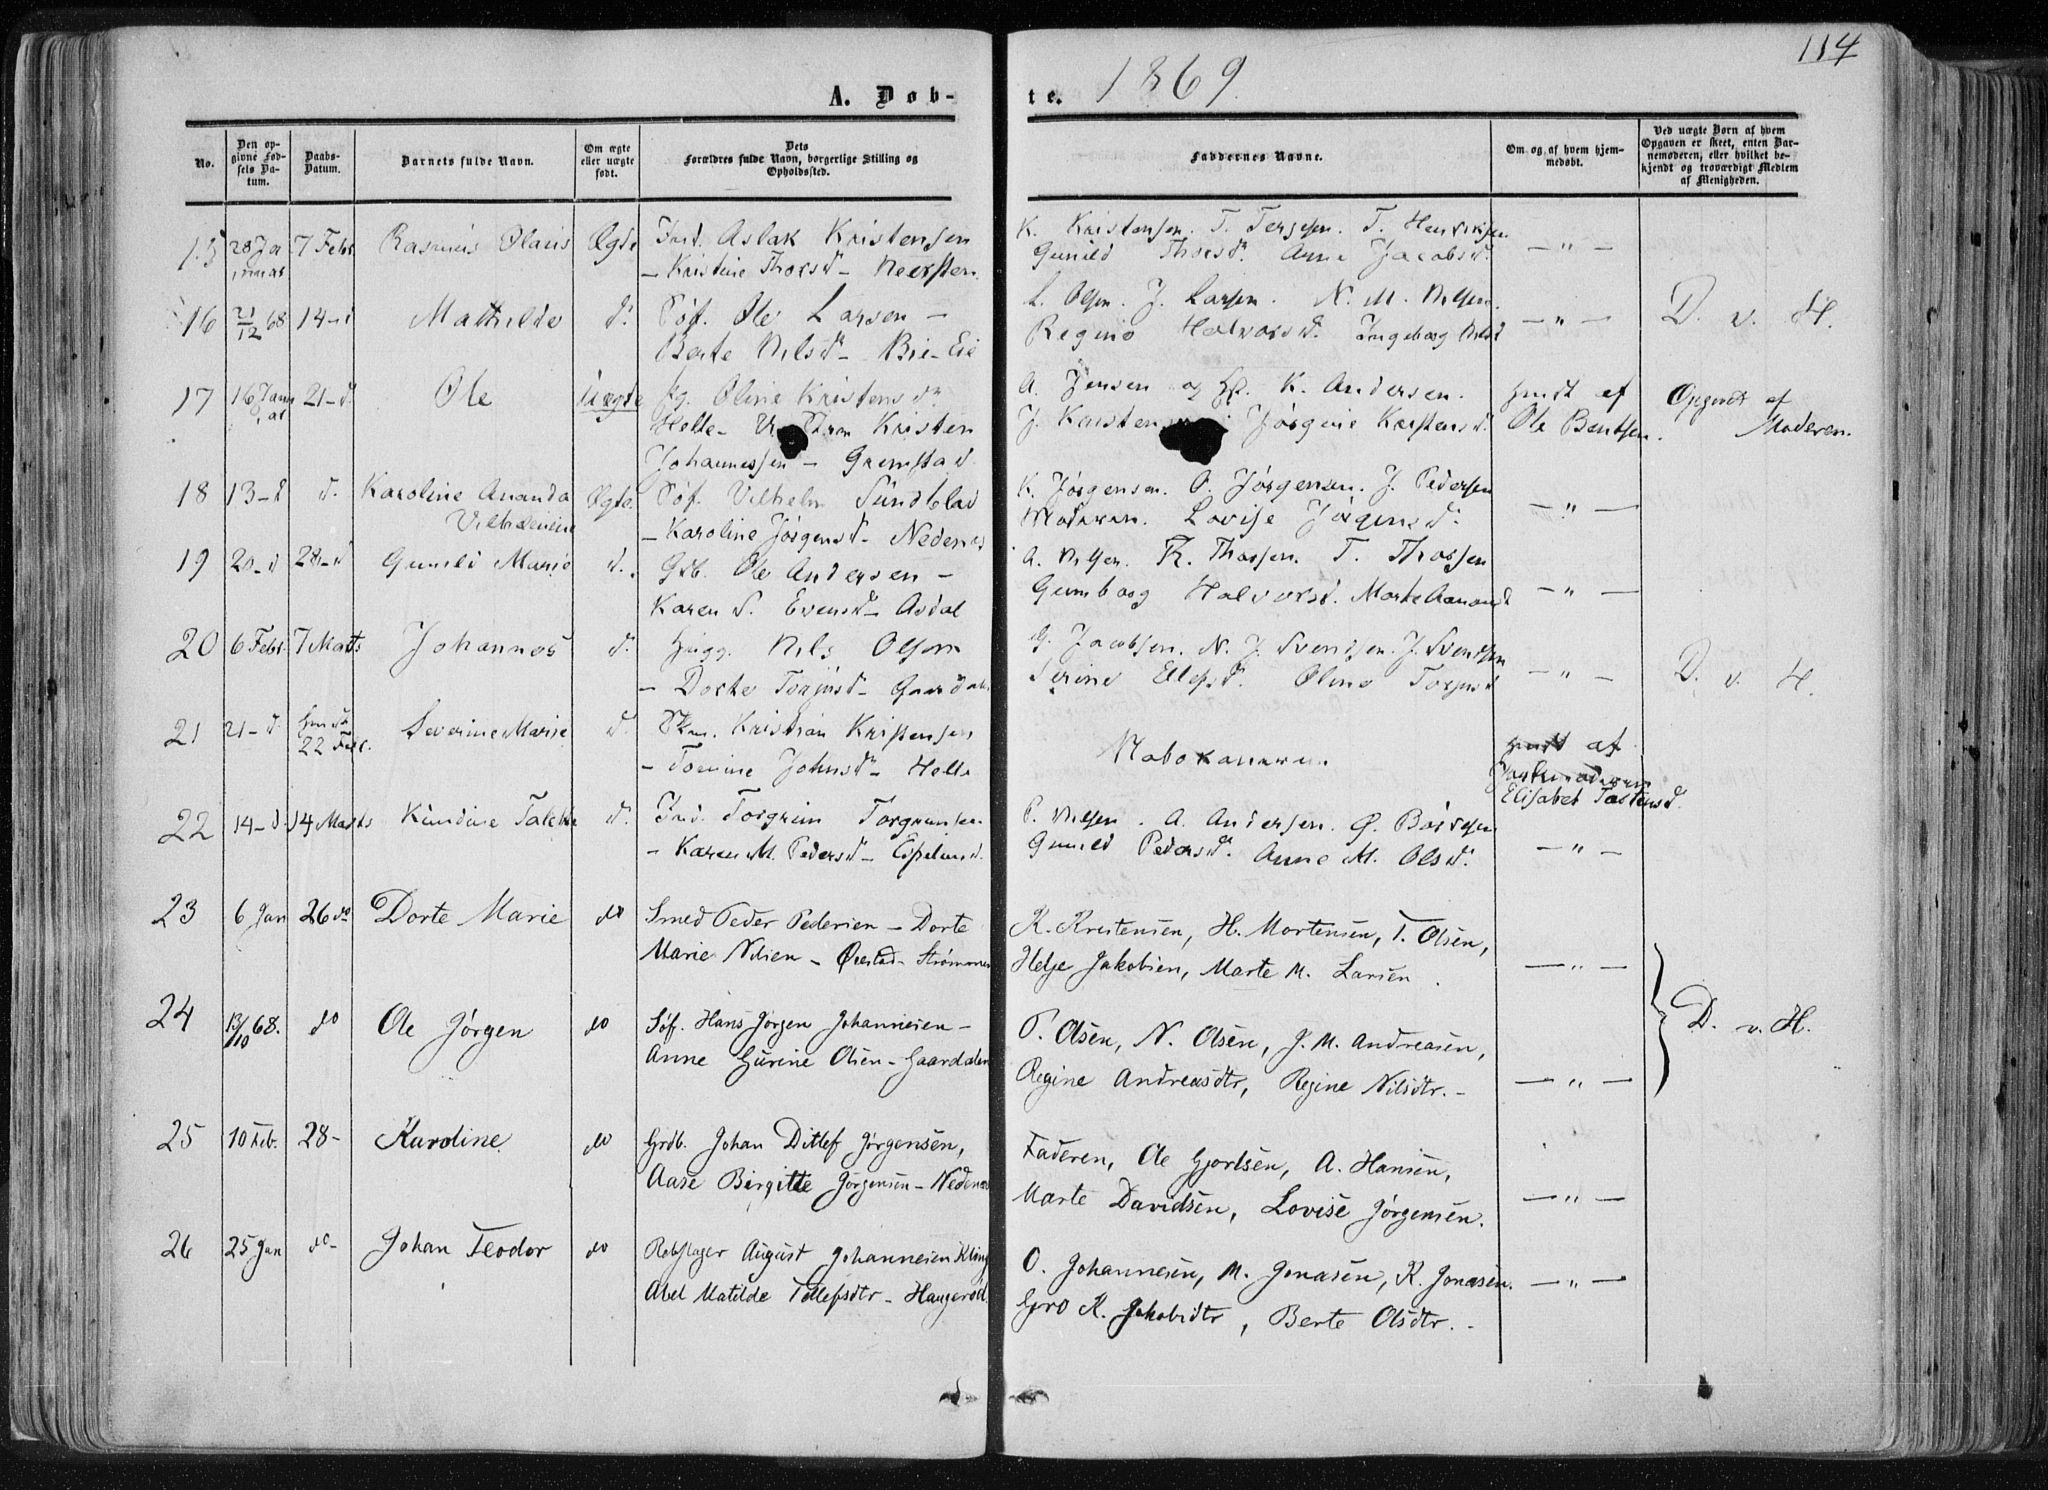 114
A. Døb-
te. 1869.
No.
Den opgivne Fødsels Datum.
Daabs-Datum.
Barnets fulde Navn.
Om ægte eller uægte født.
Dets Forældres fulde Navn, borgerlige Stilling og Opholdssted.
Faddernes Navne.
Om og af hvem hjemmedøbt.
Ved uægte Børn af hvem Opgaven er skeet, enten Barnemoderen, eller hvilket bekjendt og troværdigt Medlem af Menigheden.
15 28 Ja nuar 7 Febr Rasmus Olaus Ægte Ind. Aslak Kristensen
– Kristine Thorsd –
K. Kristensen. T. Tersen. T. Henriksen
Gunild Thorsd. Anne Jacobsd. – " –
16 21/12 68 14 – d Mathilde d. Søf. Ole Larsen –
Berte Nilsd – Bie-Eie
L. Olsen. J. Larsen. N. M. Nilsen.
Regine Halvorsd. Ingeborg Nilsd – " – D. v. H.
17 16 Januar 21 – d. Ole Uægte Pg. Oline Kristensd
Helle – Kristen
Johannessen – Grimstad.
A. Jensen og K. Andersen.
J. Karstensen Jørgine Karstensd.
Hmdt af
Ole Bentsen.
Opgivet af
Moderen.
18 13 – d d. Karoline Ananda
Vilhelmine Ægte. Søf. Vilhelm Sundblad
– Karoline Jørgensd – Nedenes
K. Jørgensen. O. Jørgensen. J. Pedersen
Moderen. Lovise Jørgensd. – " –
19 20 – d 28 – d Gunild Marie d. Grb. Ole Andersen –
Karen S. Evensd – Asdal
A. Nilsen. K. Thorsen. T. Thorsen
Gunborg Halvorsd. Marte Aanond – " –
20 6 Febr. 7 Marts Johannes d. Nils Olsen
– Dorte Torjusd – Gaardalen
G. Jacobsen. N. J. Svendsen. J. Svendsen
Serine Ellefsd. Oline Torjusd – " – D. v. H.
21 21 – d. Hmdt 22 Febr. Severine Marie d. Skm. Kristian Kristensen
– Tomine Johnsd – Helle
Nabokonerne.
Hmdt af
Jordmoderen
Elisabet Tostensd.
22 14 – d. 14 Marts Kundine Talette d. Ind. Torgrim Torgrimsen
– Karen M. Pedersd – Espelund.
P. Nilsen. A. Andersen. O. Børresen
Gunild Pedersd. Anne M. Olsd. – " –
23 6 Jan 26 do Dorte Marie do Smed Peder Pedersen – Dorte
Marie Nilsen – Ørestad – Strømmen
K. Kristensen, H. Mortensen, T. Olsen,
Helje Jakobsen, Marte M. Larsen. – " –
24 13/10 68. do Ole Jørgen do Søf. Hans Jørgen Johannesen –
Anne Gurine Olsen – Gaardalen
P. Olsen, N. Olsen, J. M. Andreasen,
Regine Andreasdtr, Regine Nilsdtr. – – " – D. v. H.
25 10 Feb. 28 – Karoline do Grdb. Johan Ditlef Jørgensen,
Aase Birgitte Jørgensen – Nedenes
Faderen, Ole Gjertsen, A. Hansen,
Marte Davidsen, Lovise Jørgensen. – " –
26 25 Jan do – Johan Teodor do Rebslager August Johannesen Kling
Abel Matilde Tellefsdtr – Haugerød.
O. Johannesen, M. Jonasen, K. Jonasen. – " –
Gro K. Jakobsdtr, Berte Olsdtr. –